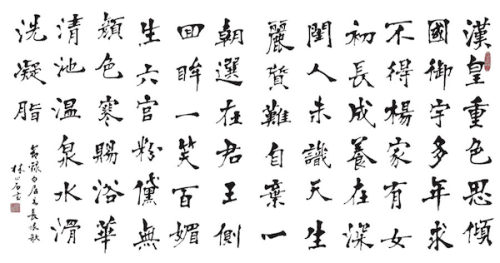 漢皇重色思傾
國御宇多年求
不得楊家有女
初長成養在深
閨人未識天生
麗質難自棄一
朝選在君王側
回眸一笑百媚
生六宮粉黛無
顏色寒賜浴華
清池溫泉水滑
洗凝脂
錄白居易長恨歌